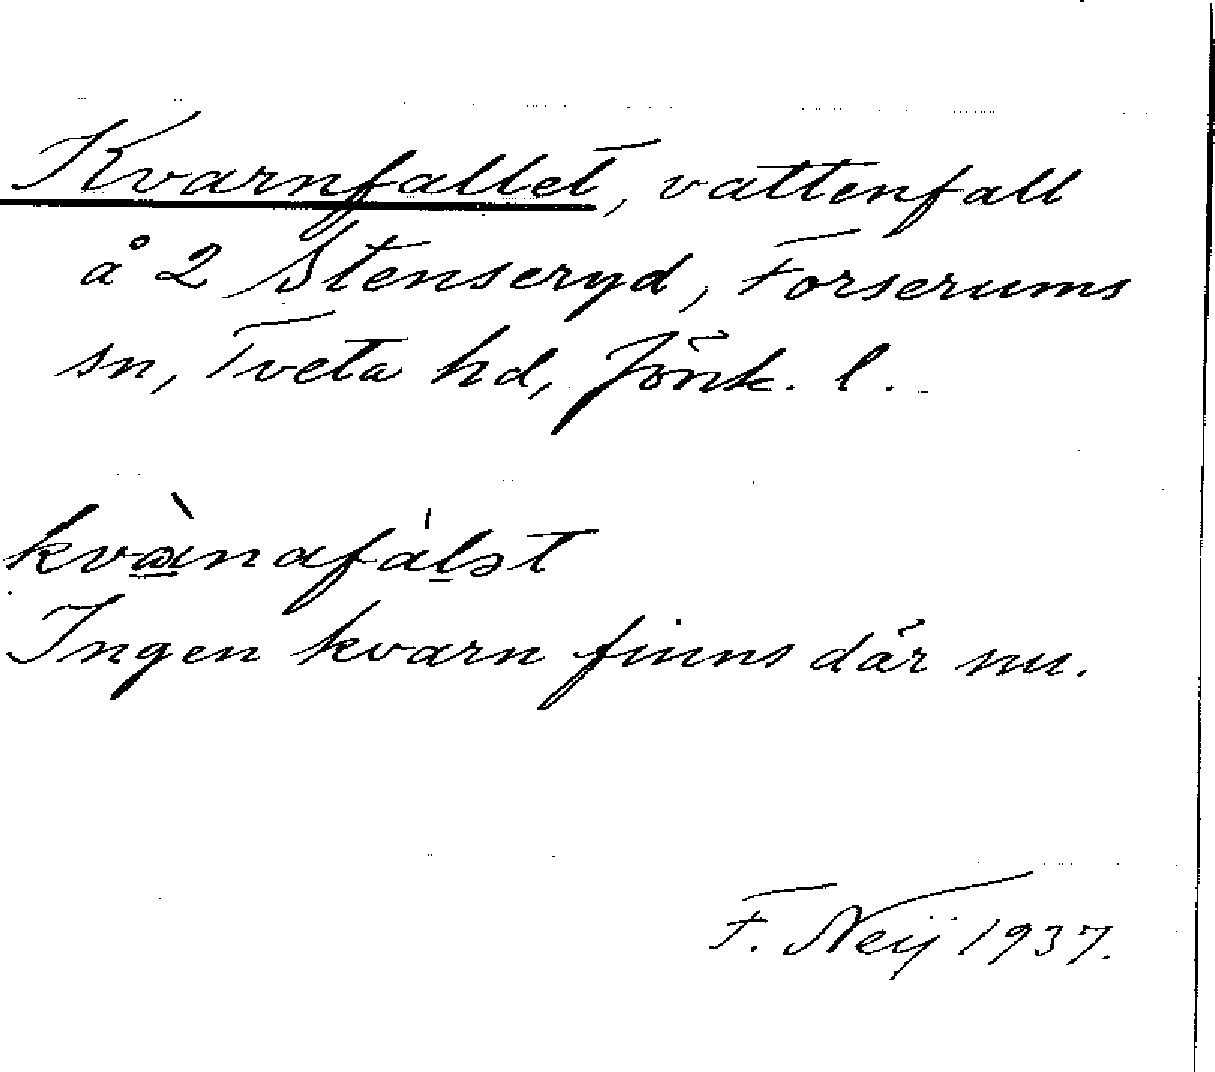 Kvarnfallet, vattenfall
å 2 Stenseryd, Forserums
sn, Tveta hd, Jönk. l.
kvànafálət
Ingen kvarn finns där nu.
F. Neij 1937.